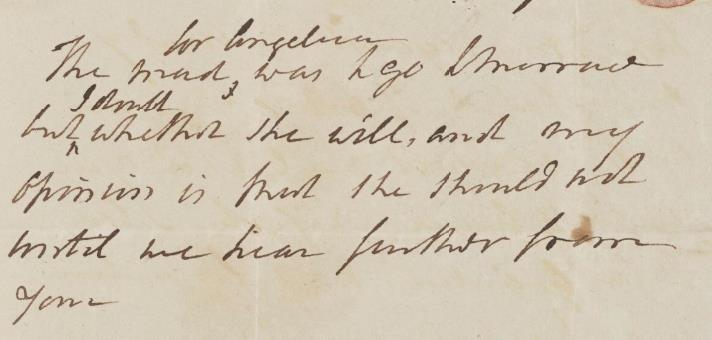 for Angelica
The maid, was to go Tomorrow
I doubt
but whether she will, and my
opinion is that she should not
until we hear further from
you